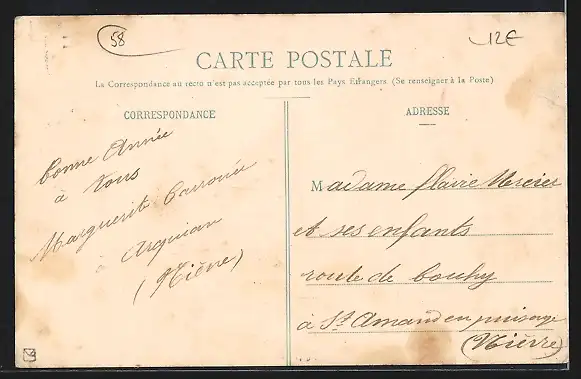 58
12€
CARTE POSTALE
La Correspondance au recto n'est pas acceptée par tous les Pays Etrangers (Se renseigner à la Poste)
CORRESPONDANCE
Bonne Année
à Tous
Marguerite
à Arquian
(Nièvre)
ADRESSE
Madame flavie Mercier
et ses enfants
route de bouhy
à St Amand en puisaye
(Nièvre)